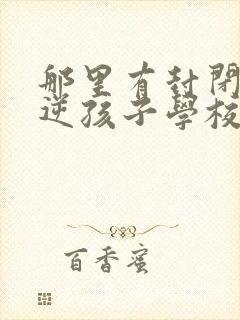 那里有封閉
逆孩子學校
百香蜜